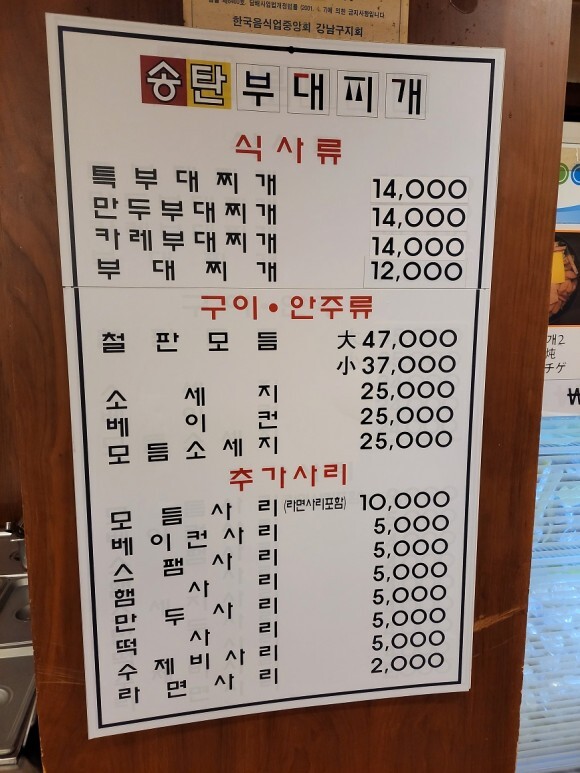 한국음식업중앙회 강남구지회
송탄부대찌개
식사류
특부대찌개 14,000
만두부대찌개 14,000
카레부대찌개 14,000
부대찌개 12,000
구이·안주류
철판모듬 大 47,000
小 37,000
소세지 25,000
베이컨 25,000
모듬소세지 25,000
추가사리
모듬사리(라면사리포함) 10,000
베이컨사리 5,000
스팸사리 5,000
햄사리 5,000
만두사리 5,000
떡사리 5,000
수제비사리 5,000
라면사리 2,000
개2
チゲ
₩